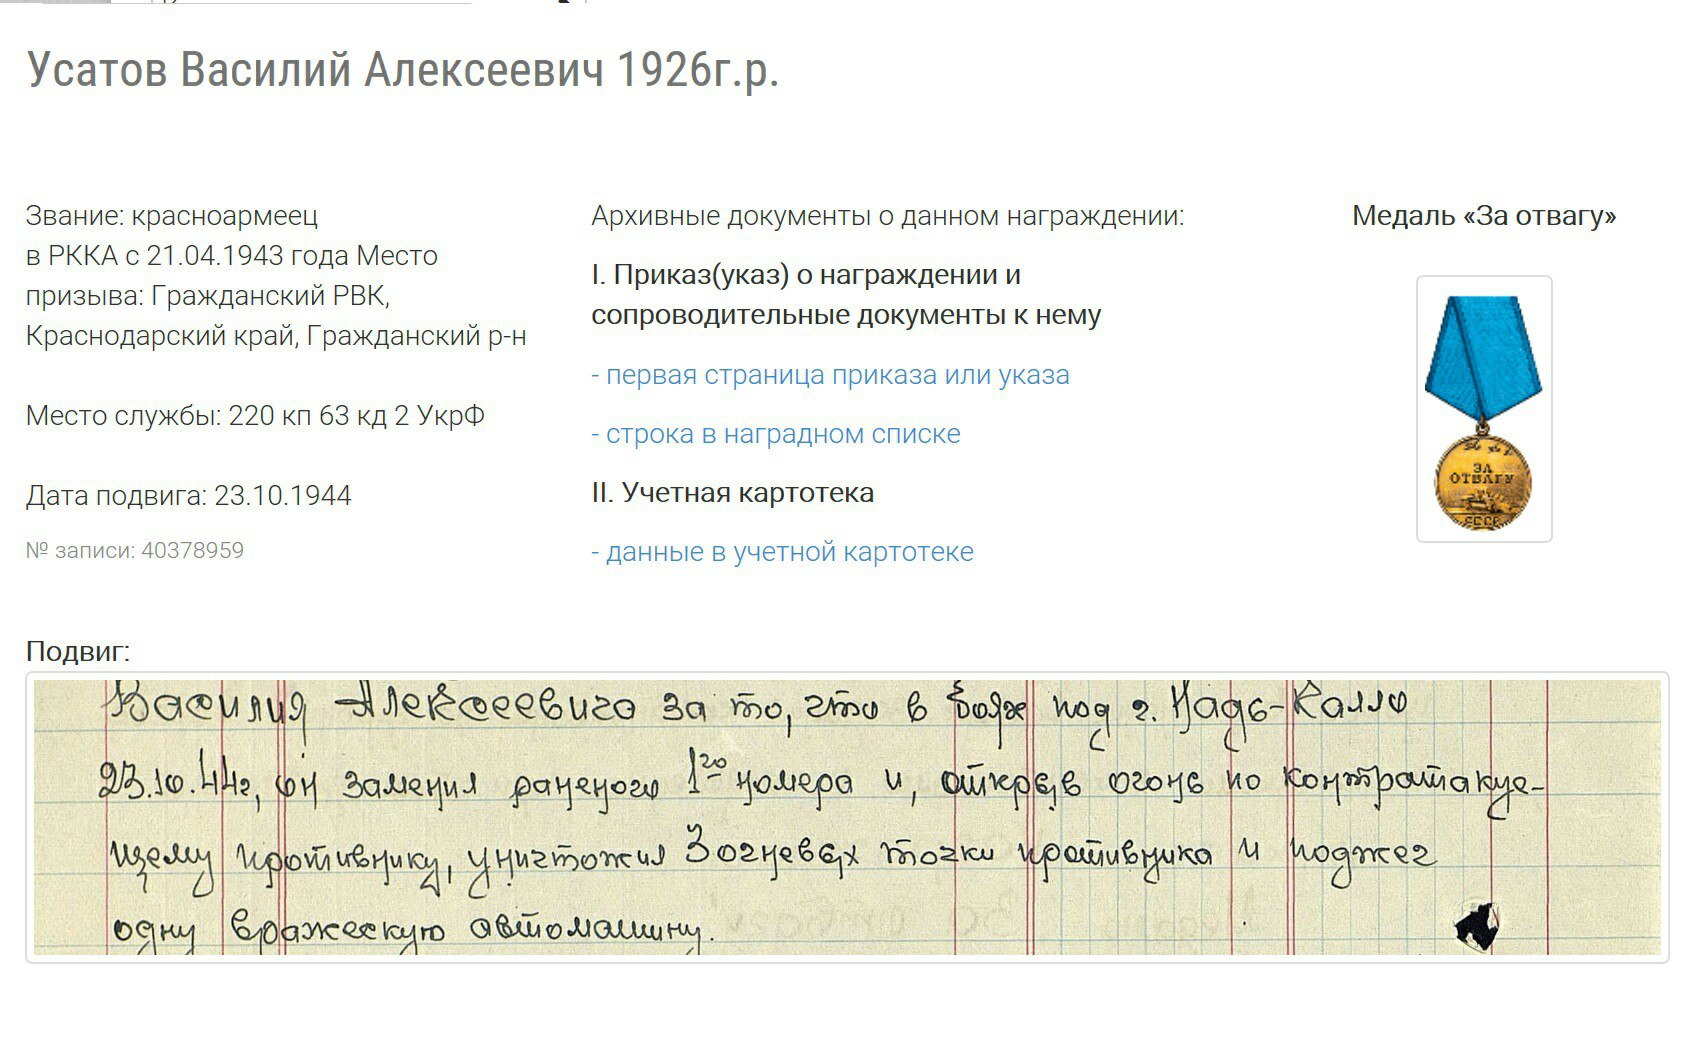 Усатов Василий Алексеевич 1926г.р.
Звание: красноармеец
в РККА с 21.04.1943 года Место
призыва: Гражданский РВК,
Краснодарский край, Гражданский р-н
Место службы: 220 кп 63 кд 2 УкрФ
Дата подвига: 23.10.1944
№ записи: 40378959
Архивные документы о данном награждении:
I. Приказ(указ) о награждении и
сопроводительные документы к нему
- первая страница приказа или указа
- строка в наградном списке
II. Учетная картотека
- данные в учетной картотеке
Медаль «За отвагу»
ЗА
ОТВАГУ
СССР
Подвиг:
Василия Алексеевича за то, что в боях под г. Надь-Калло
23.10.44г, он заменил раненого 1го номера и, открыв огонь по контратакую-
щему противнику, уничтожил 3 огневых точки противника и поджег
одну вражескую автомашину.